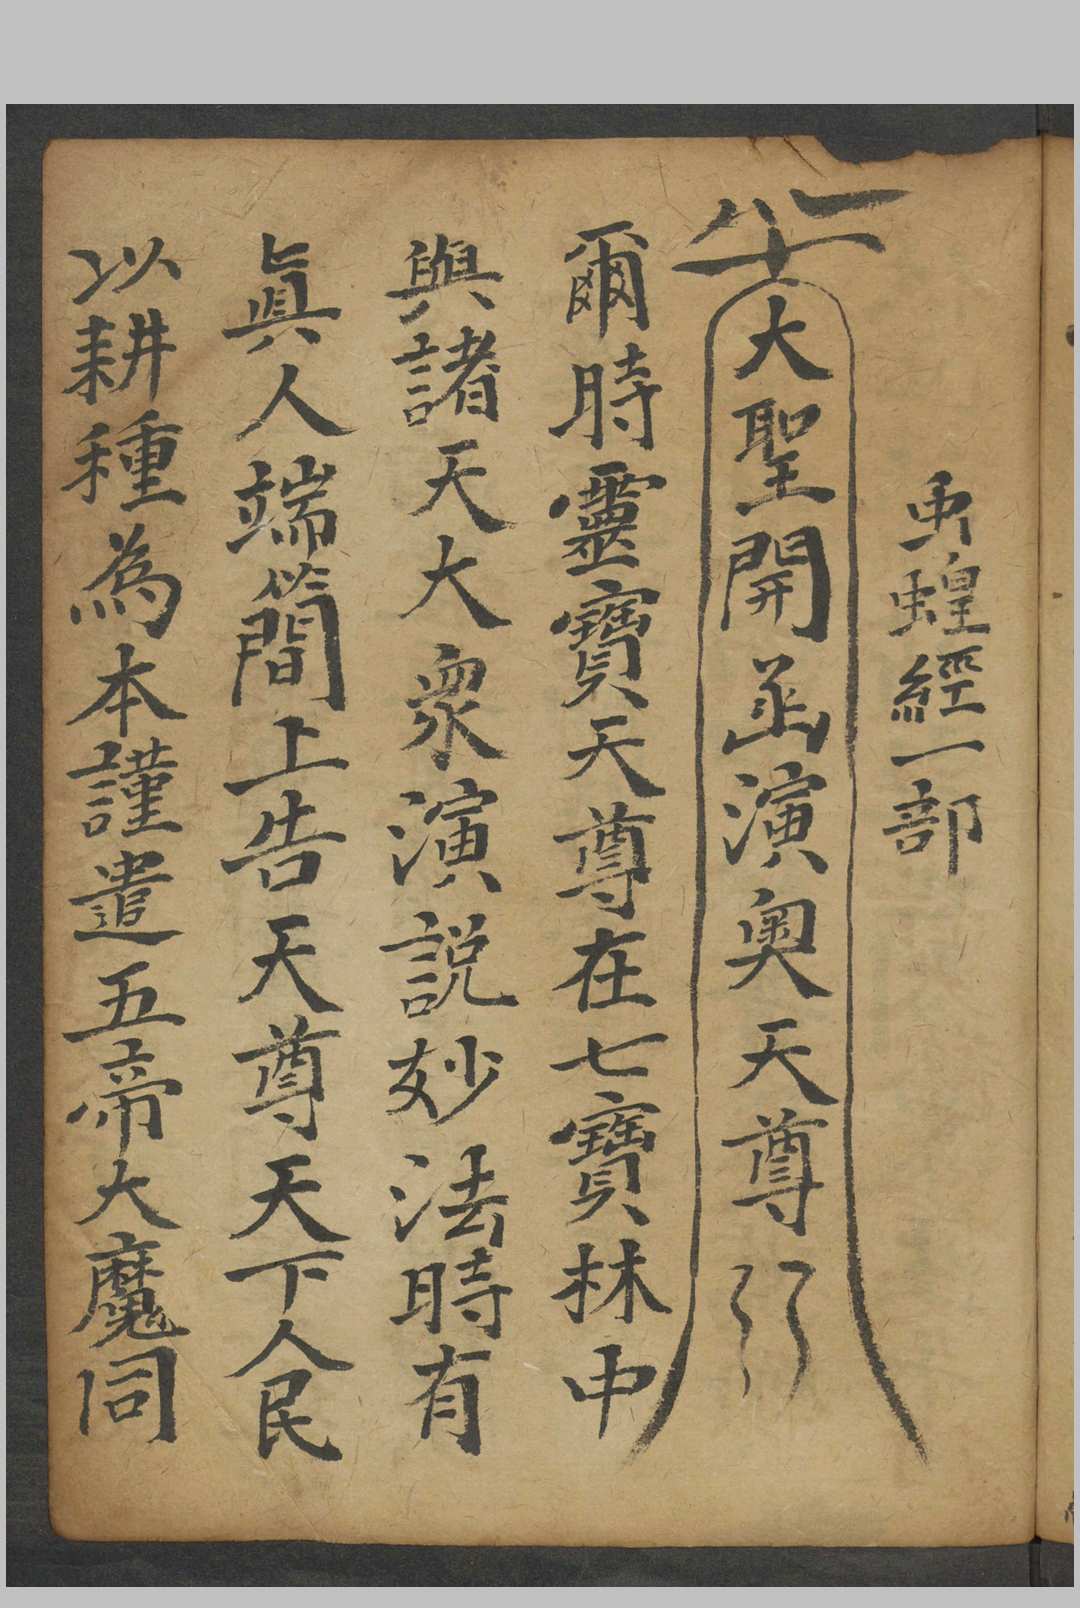 虫蝗經一部
大聖開函演奥天尊
爾時靈寶天尊在七寶林中
與諸天大衆演説妙法時有
眞人端簡上告天尊天下人民
以耕種為本謹遣五帝大魔同